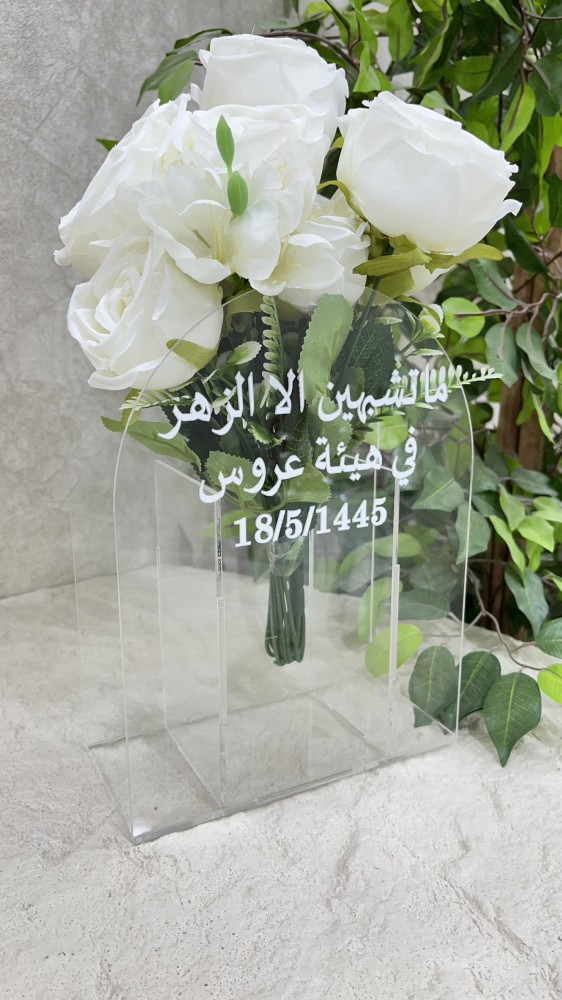 ماتشبهين الا الزهر
في هيئة عروس
18/5/1445